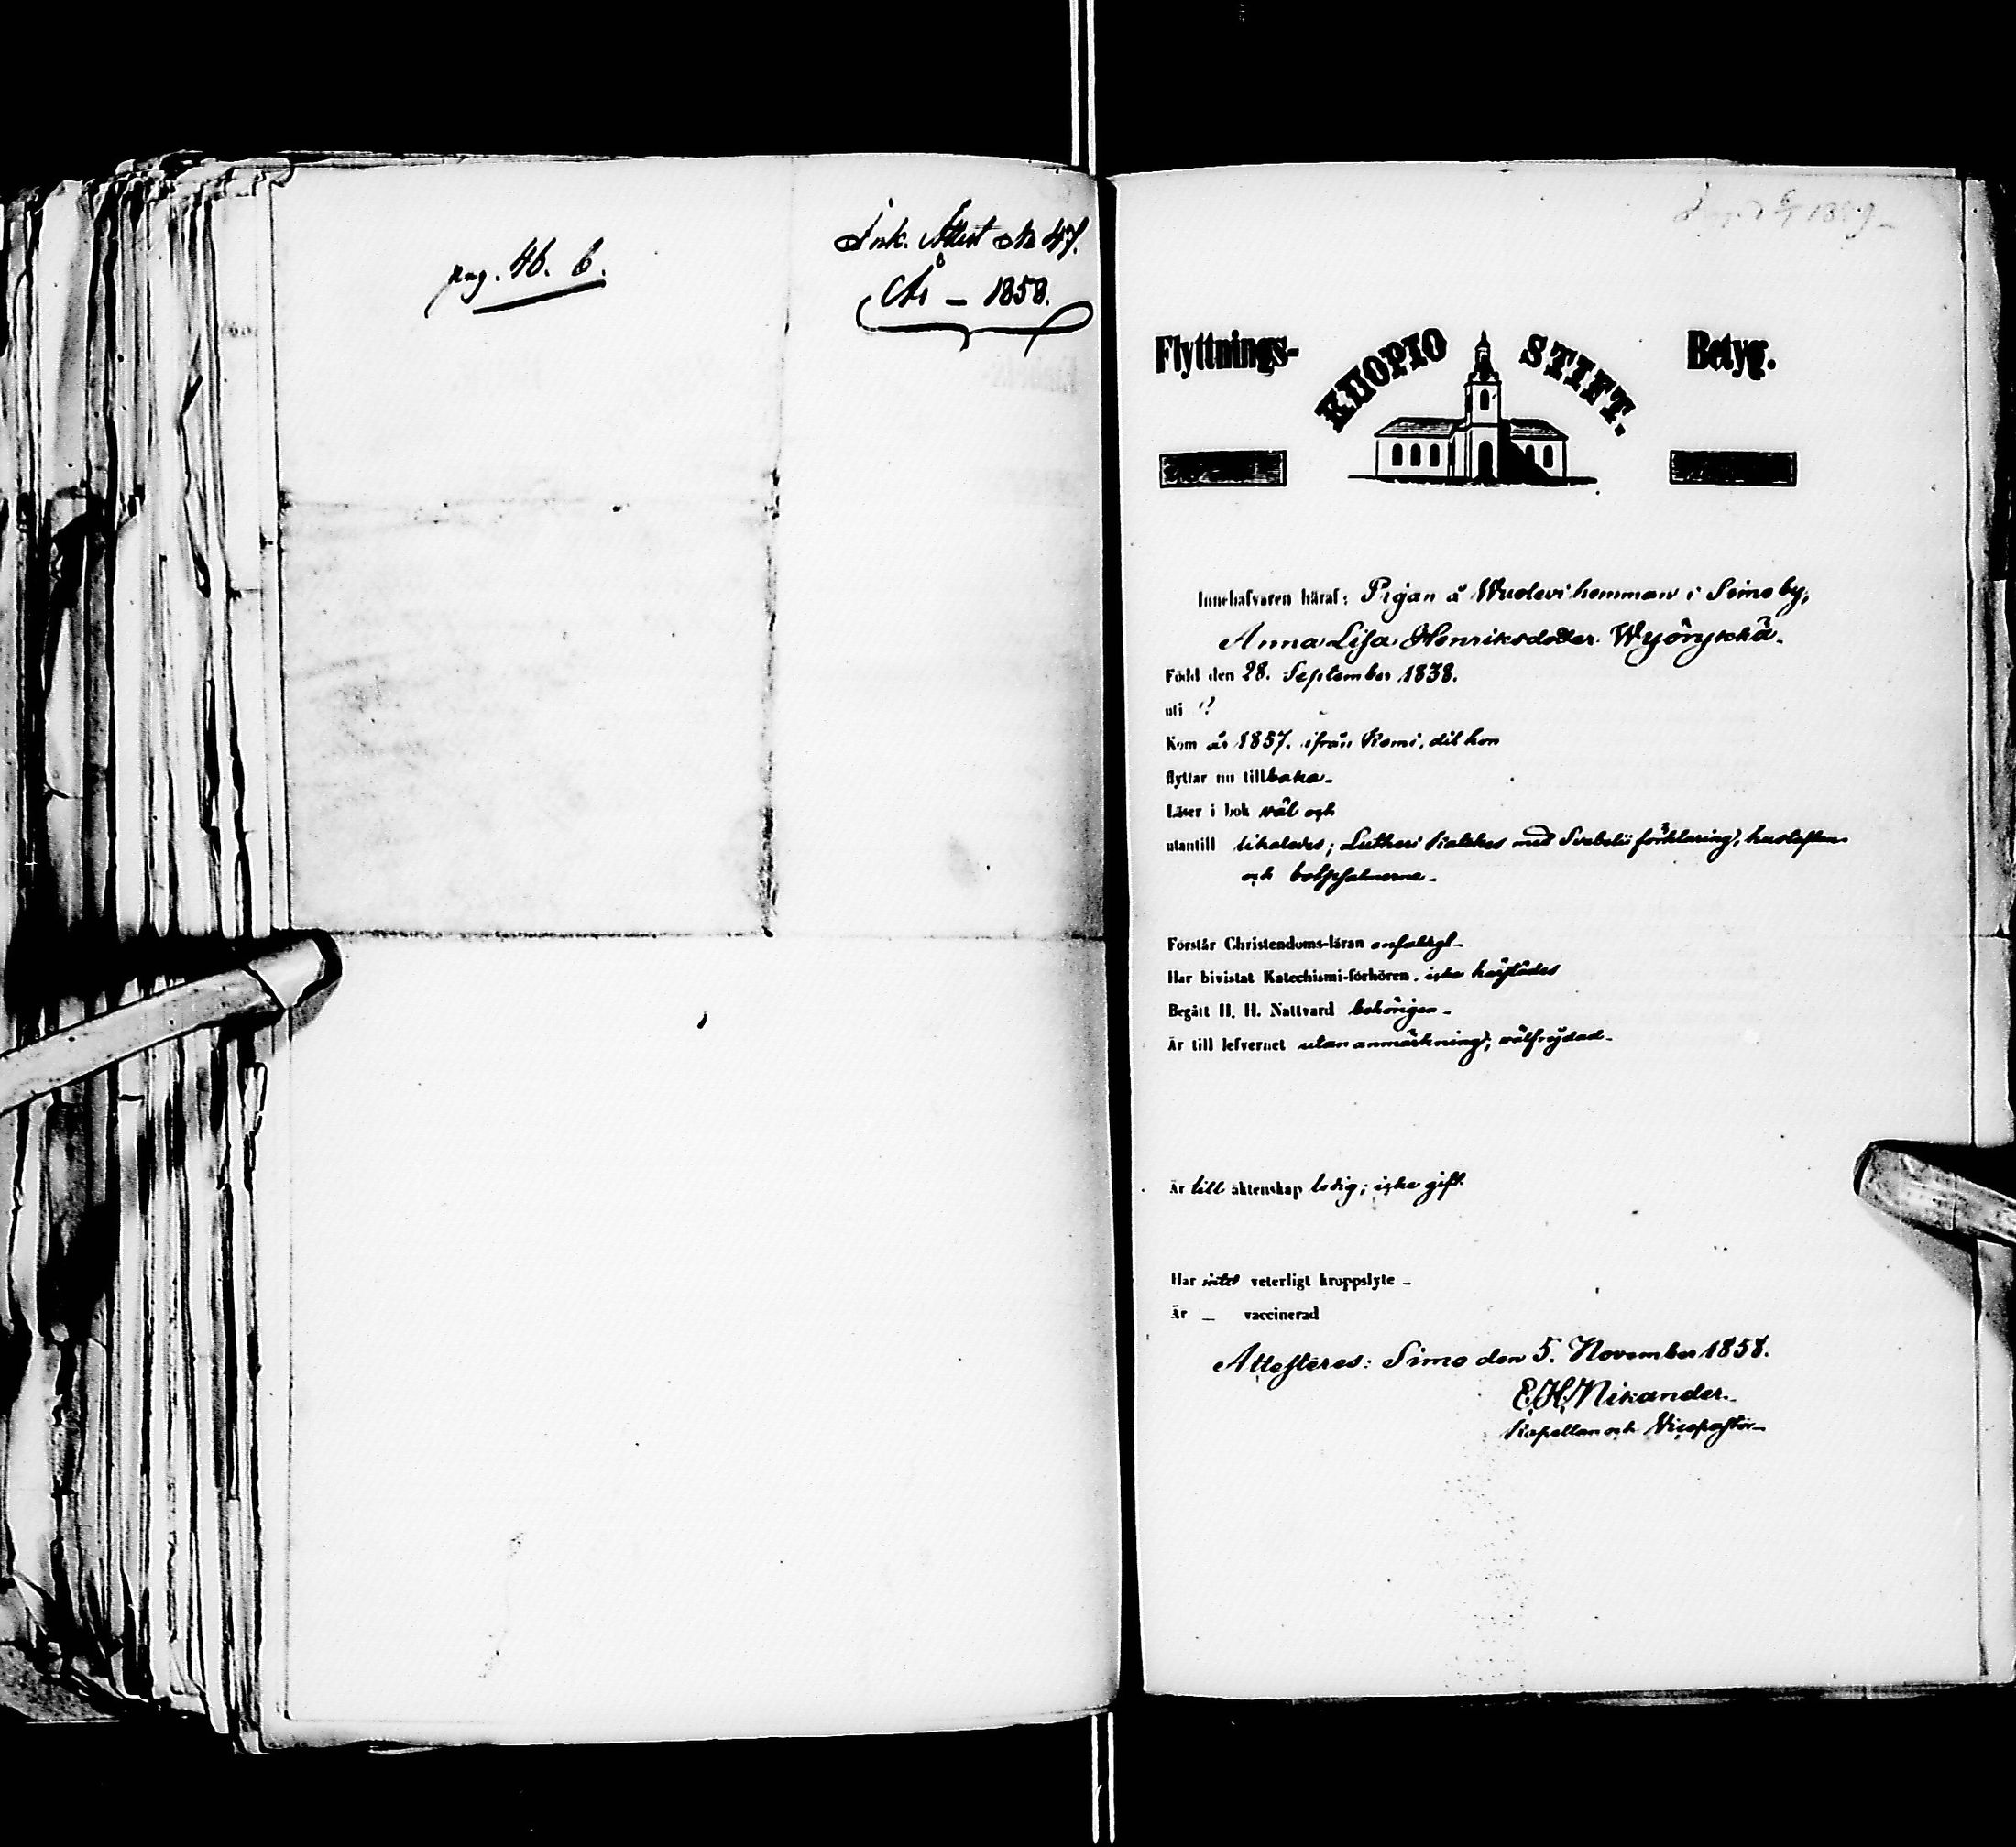 pag. 46. b.
Ink. Attest No 47.
År – 1858.
1859
Flyttnings- KUOPIO STIFT. Betyg.
Innehafvaren häraf: Pigan å Wuolevi hemman i Simo by,
Anna Lisa Henriksdotter Wyörykkä.
Född den 28. September 1838.
uti ?
Kom år 1857. ifrån Kemi, dit hon
flyttar nu tillbaka.
Läser i bok väl och
utantill likaledes; Lutheri Kateches med Svebelii förklaring, hustaflan
och botpsalmerna.
Förstår Christendoms-läran enfaldigt.
Har bivistat Katechismi-förhören. icke
Begått H. H. Nattvard behörigen.
Är till lefvernet utan anmärkning; välfrejdad.
Är till äktenskap ledig; icke gift.
Har intet veterligt kroppslyte –
Är – vaccinerad
Attesteras: Simo den 5. November 1858.
E. H. Nikander.
Kapellan och Vicepastor